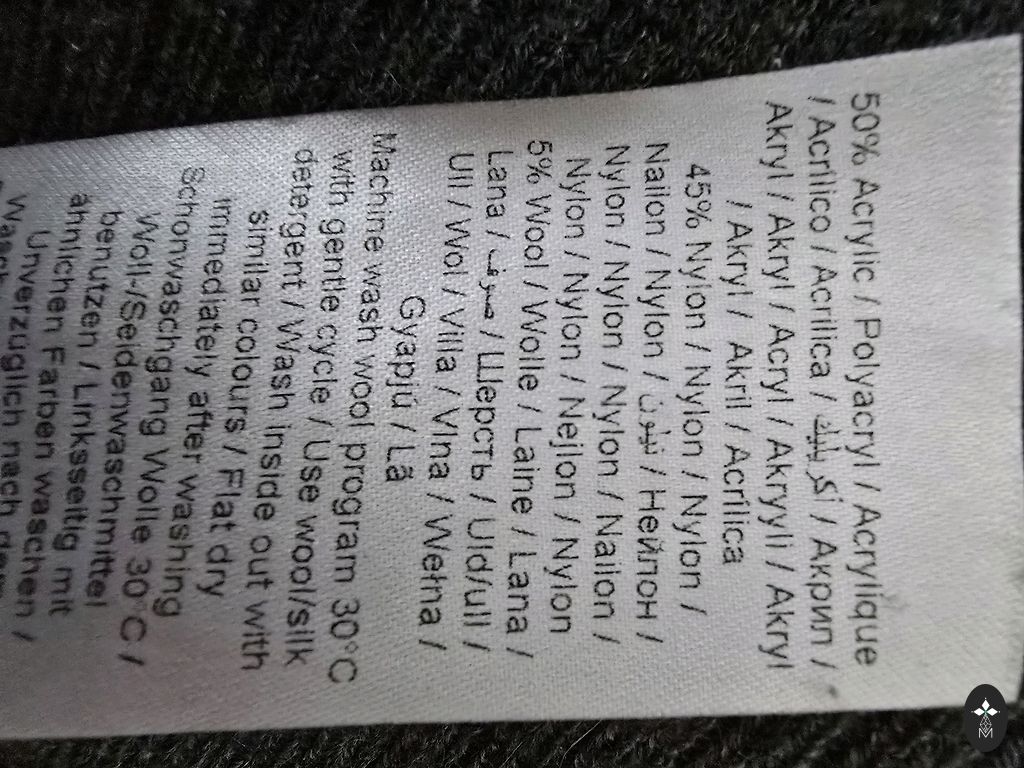 50% Acrylic / Polyacryl / Acrylique
/ Acrílico / Acrilica / أكريليك / Акрил /
Akryl / Akryl / Acryl / Akryyli / Akryl
/ Akryl / Akril / Acrílica
45% Nylon / Nylon / Nylon /
Nailon / Nylon / نيلون / Нейлон /
Nylon / Nylon / Nylon / Nailon /
Nylon / Nylon / Nejlon / Nylon
5% Wool / Wolle / Laine / Lana /
Lana / صوف / Шерсть / Uld/ull /
Ull / Wol / Villa / Vlna / Wełna /
Gyapjú / Lã
Machine wash wool program 30°C
with gentle cycle / Use wool/silk
detergent / Wash inside out with
similar colours / Flat dry
immediately after washing
Schonwaschgang Wolle 30°C /
Woll-/Seidenwaschmittel
benutzen / Linksseitig mit
ähnlichen Farben waschen /
Unverzüglich nach dem
M